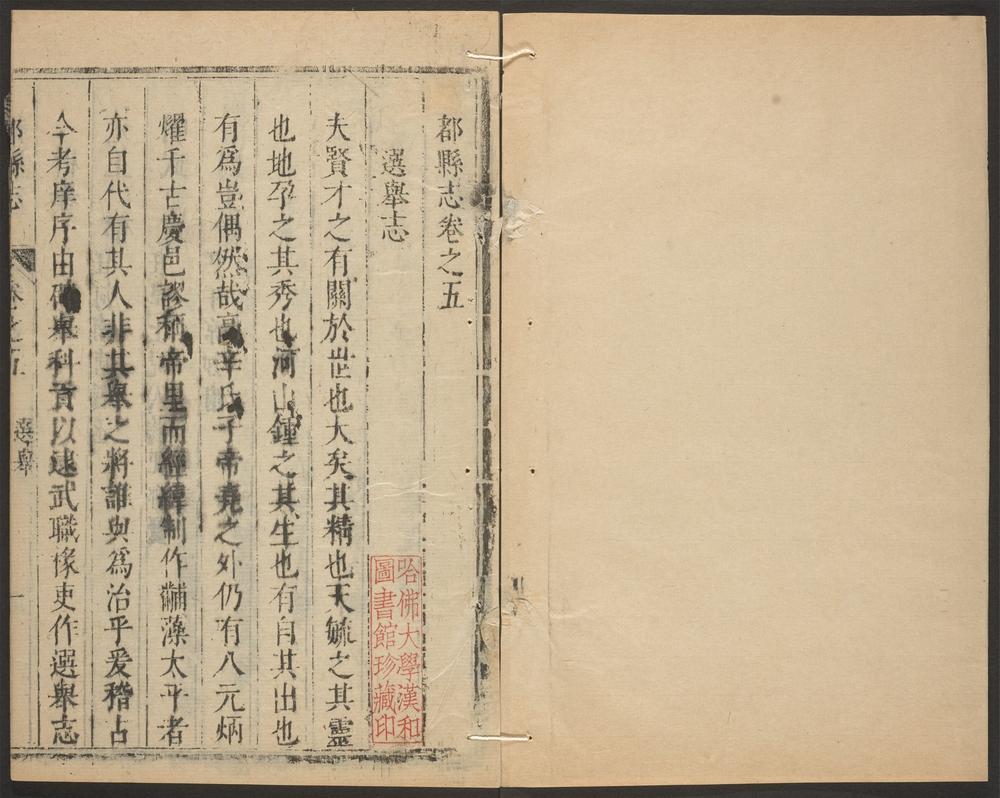 都縣志卷之五
選舉志
夫賢才之有關於世也大矣其精也天毓之其靈
也地孕之其秀也河山鍾之其生也有自其出也
有爲豈偶然哉高辛氏子帝堯之外仍有八元炳
燿千古慶邑謬稱帝里而經緯制作黼藻太平者
亦自代有其人非其舉之將誰與爲治乎爰稽古
今考庠序由 舉科貢以逮武職掾吏作選舉志
縣志
卷之五
選舉
一
哈佛大學漢和
圖書館珍藏印